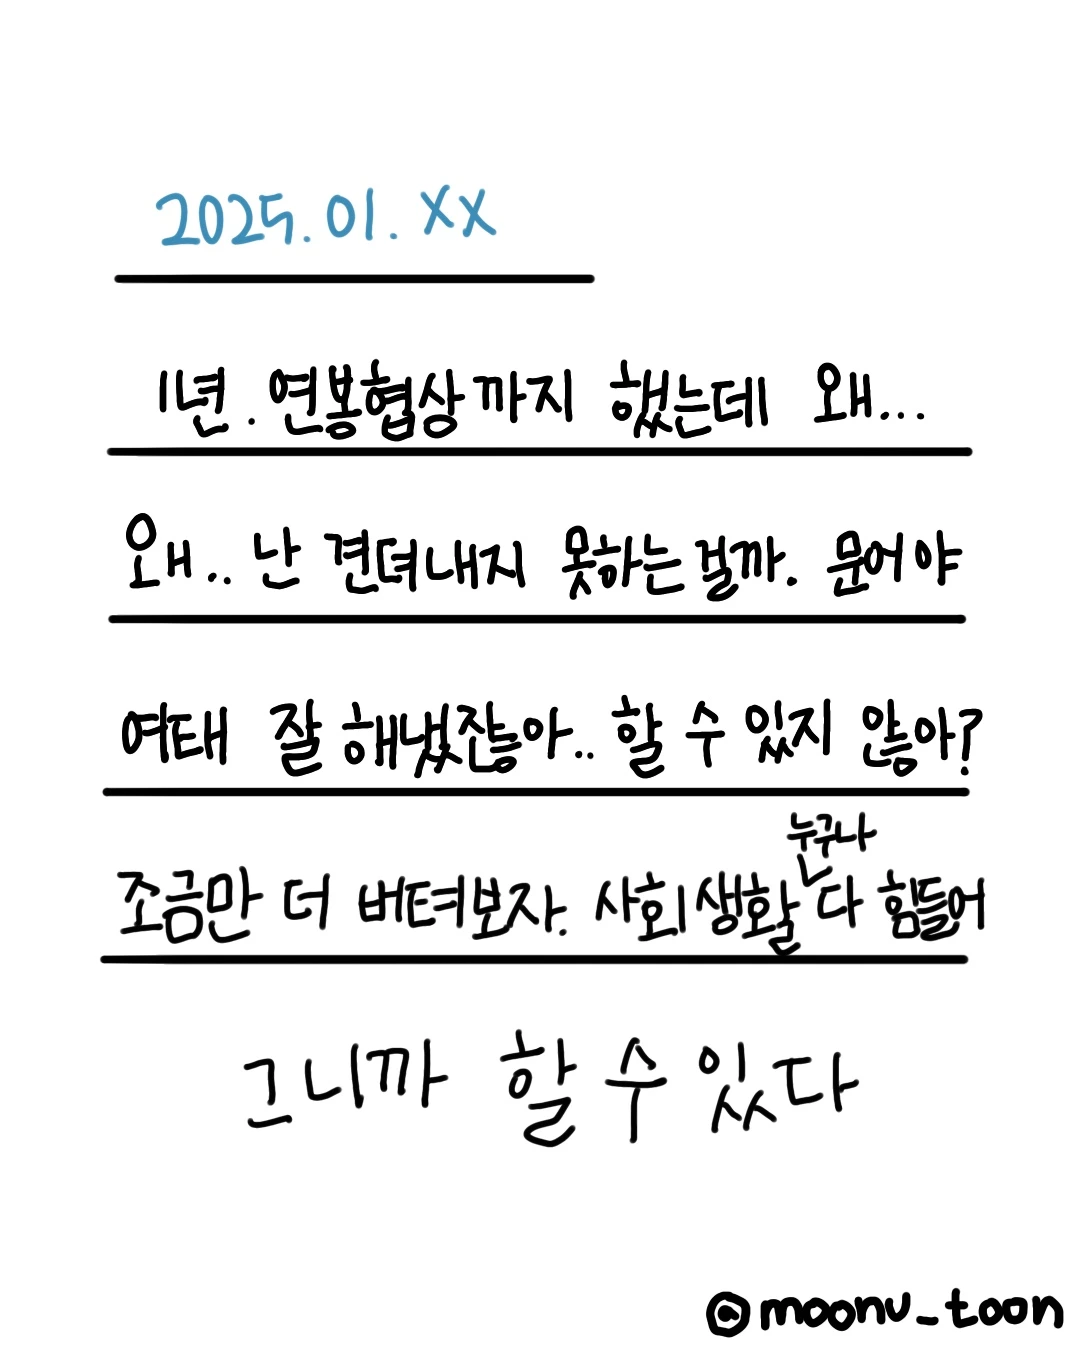 2025.01.XX
1년. 연봉협상까지 했는데 왜...
왜.. 난 견뎌내지 못하는걸까. 문어야
여태 잘 해냈잖아.. 할 수 있지 않아?
누구나
조금만 더 버텨보자. 사회생활 다 힘들어
그니까 할 수 있다
@moonu_toon